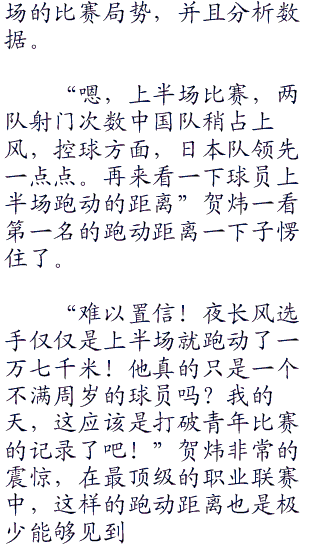 场的比赛局势，并且分析数
据。
“嗯，上半场比赛，两
队射门次数中国队稍占上
风，控球方面，日本队领先
一点点。再来看一下球员上
半场跑动的距离”贺炜一看
第一名的跑动距离一下子愣
住了。
“难以置信！夜长风选
手仅仅是上半场就跑动了一
万七千米！他真的只是一个
不满周岁的球员吗？我的
天，这应该是打破青年比赛
的记录了吧！”贺炜非常的
震惊，在最顶级的职业联赛
中，这样的跑动距离也是极
少能够见到